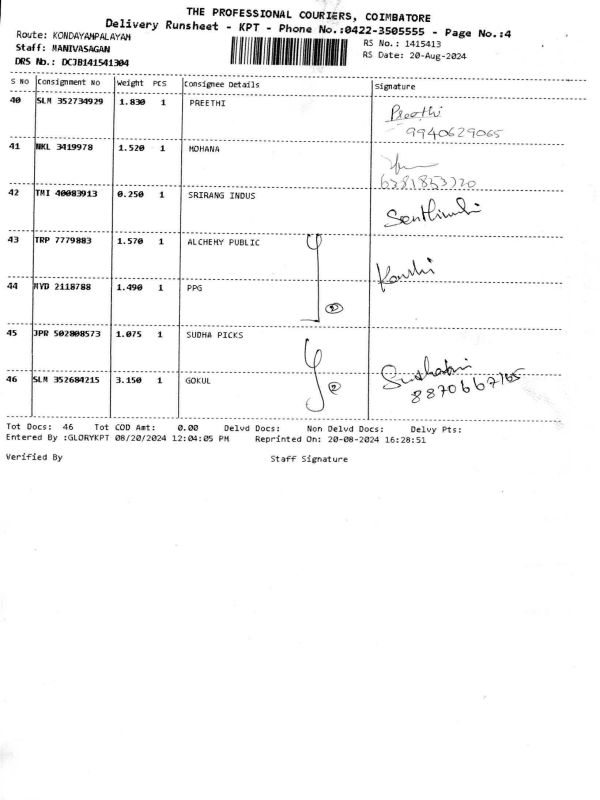 THE PROFESSIONAL COURIERS, COIMBATORE
Delivery Runsheet - KPT - Phone No.:0422-3505555 - Page No.:4
Route: KONDAYAMPALAYAM
RS No.: 1415413
Staff: MANIVASAGAN
RS Date: 20-Aug-2024
DRS No.: DCJB141541304
S No Consignment No Weight PCS Consignee Details Signature
40 SLM 352734929 1.830 1 PREETHI Preethi
9940629065
41 NKL 3419978 1.520 1 MOHANA
42 TMI 40083913 0.250 1 SRIRANG INDUS
43 TRP 7779883 1.570 1 ALCHEMY PUBLIC
44 MYD 2118788 1.490 1 PPG
45 JPR 502808573 1.075 1 SUDHA PICKS
46 SLM 352684215 3.150 1 GOKUL
8870667165
Tot Docs: 46 Tot COD Amt: 0.00 Delvd Docs: Non Delvd Docs: Delvy Pts:
Entered By :GLORYKPT 08/20/2024 12:04:05 PM Reprinted On: 20-08-2024 16:28:51
Verified By Staff Signature